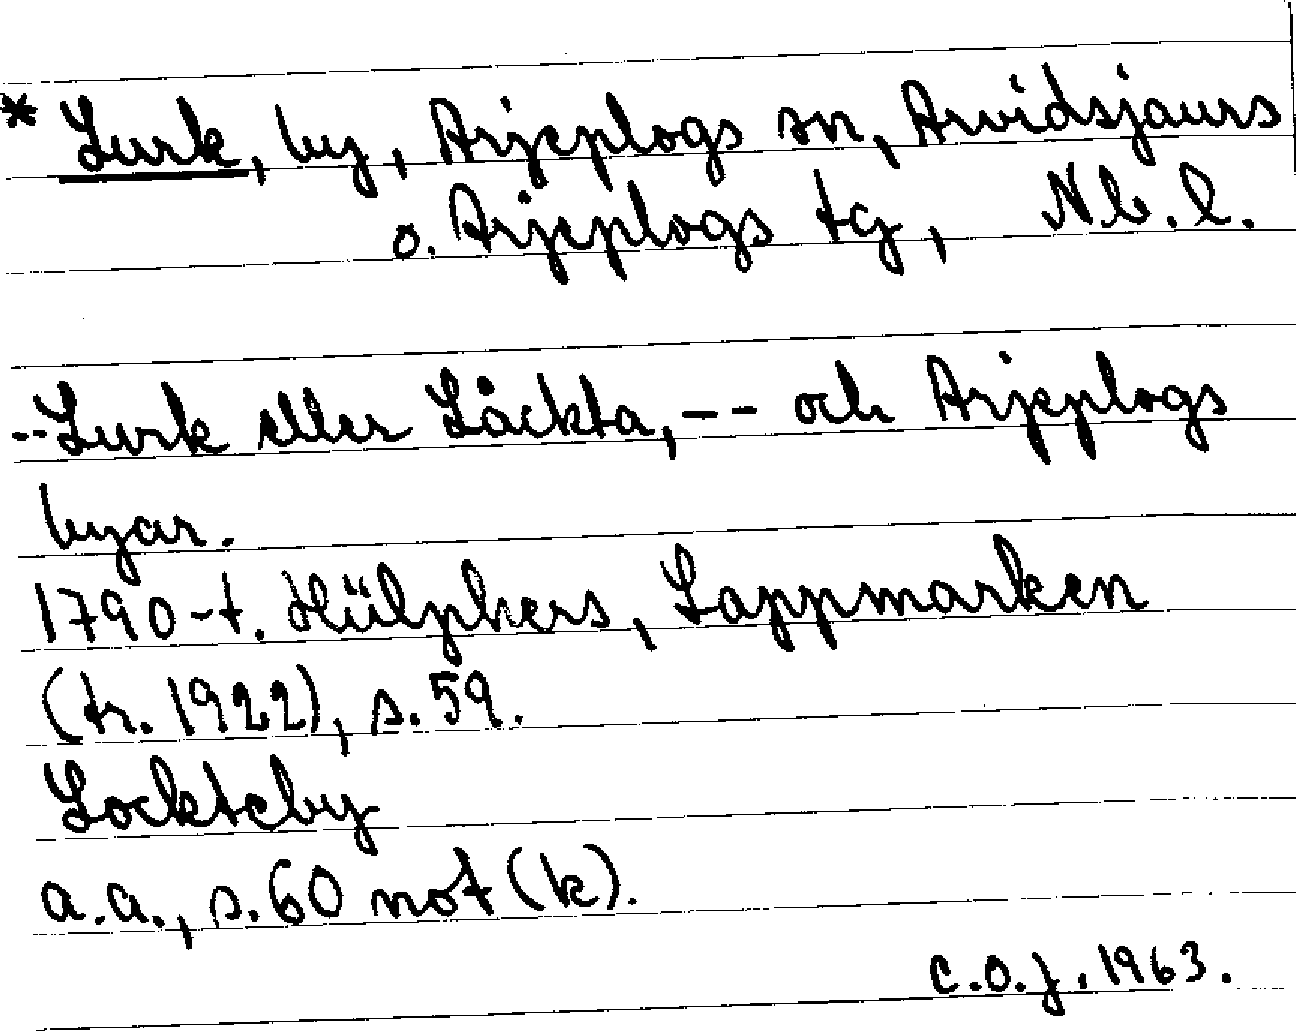 * Lurk, by, Arjeplogs sn, Arvidsjaurs
o. Arjeplogs tg, Nb. l.
-- Lurk eller Låckta, -- och Arjeplogs
byar.
1790-t. Hülphers, Lappmarken
(tr. 1922), s. 59.
Lockteby
a.a., s. 60 not (k).
C.O.J. 1963.